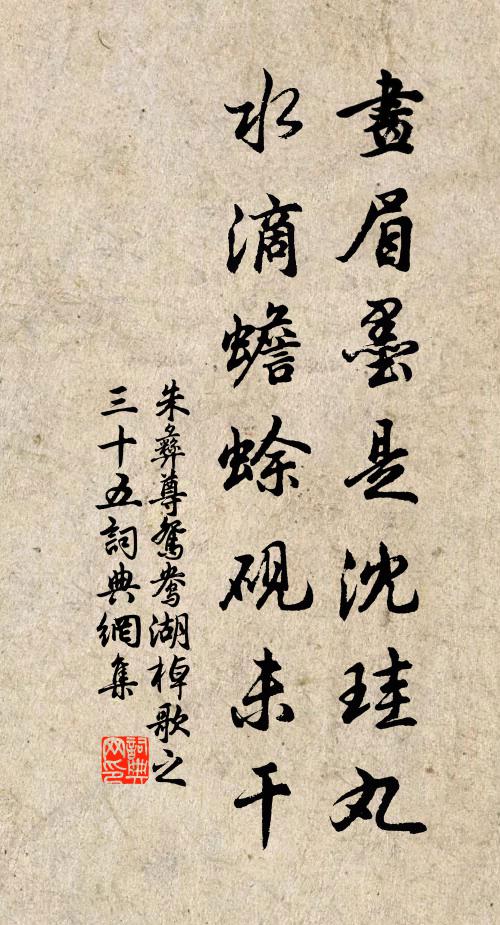 畫眉墨是沈珪丸
水滴蟾蜍硯未干
朱彝尊鴛鴦湖棹歌之
三十五詞典網集
詞典網印